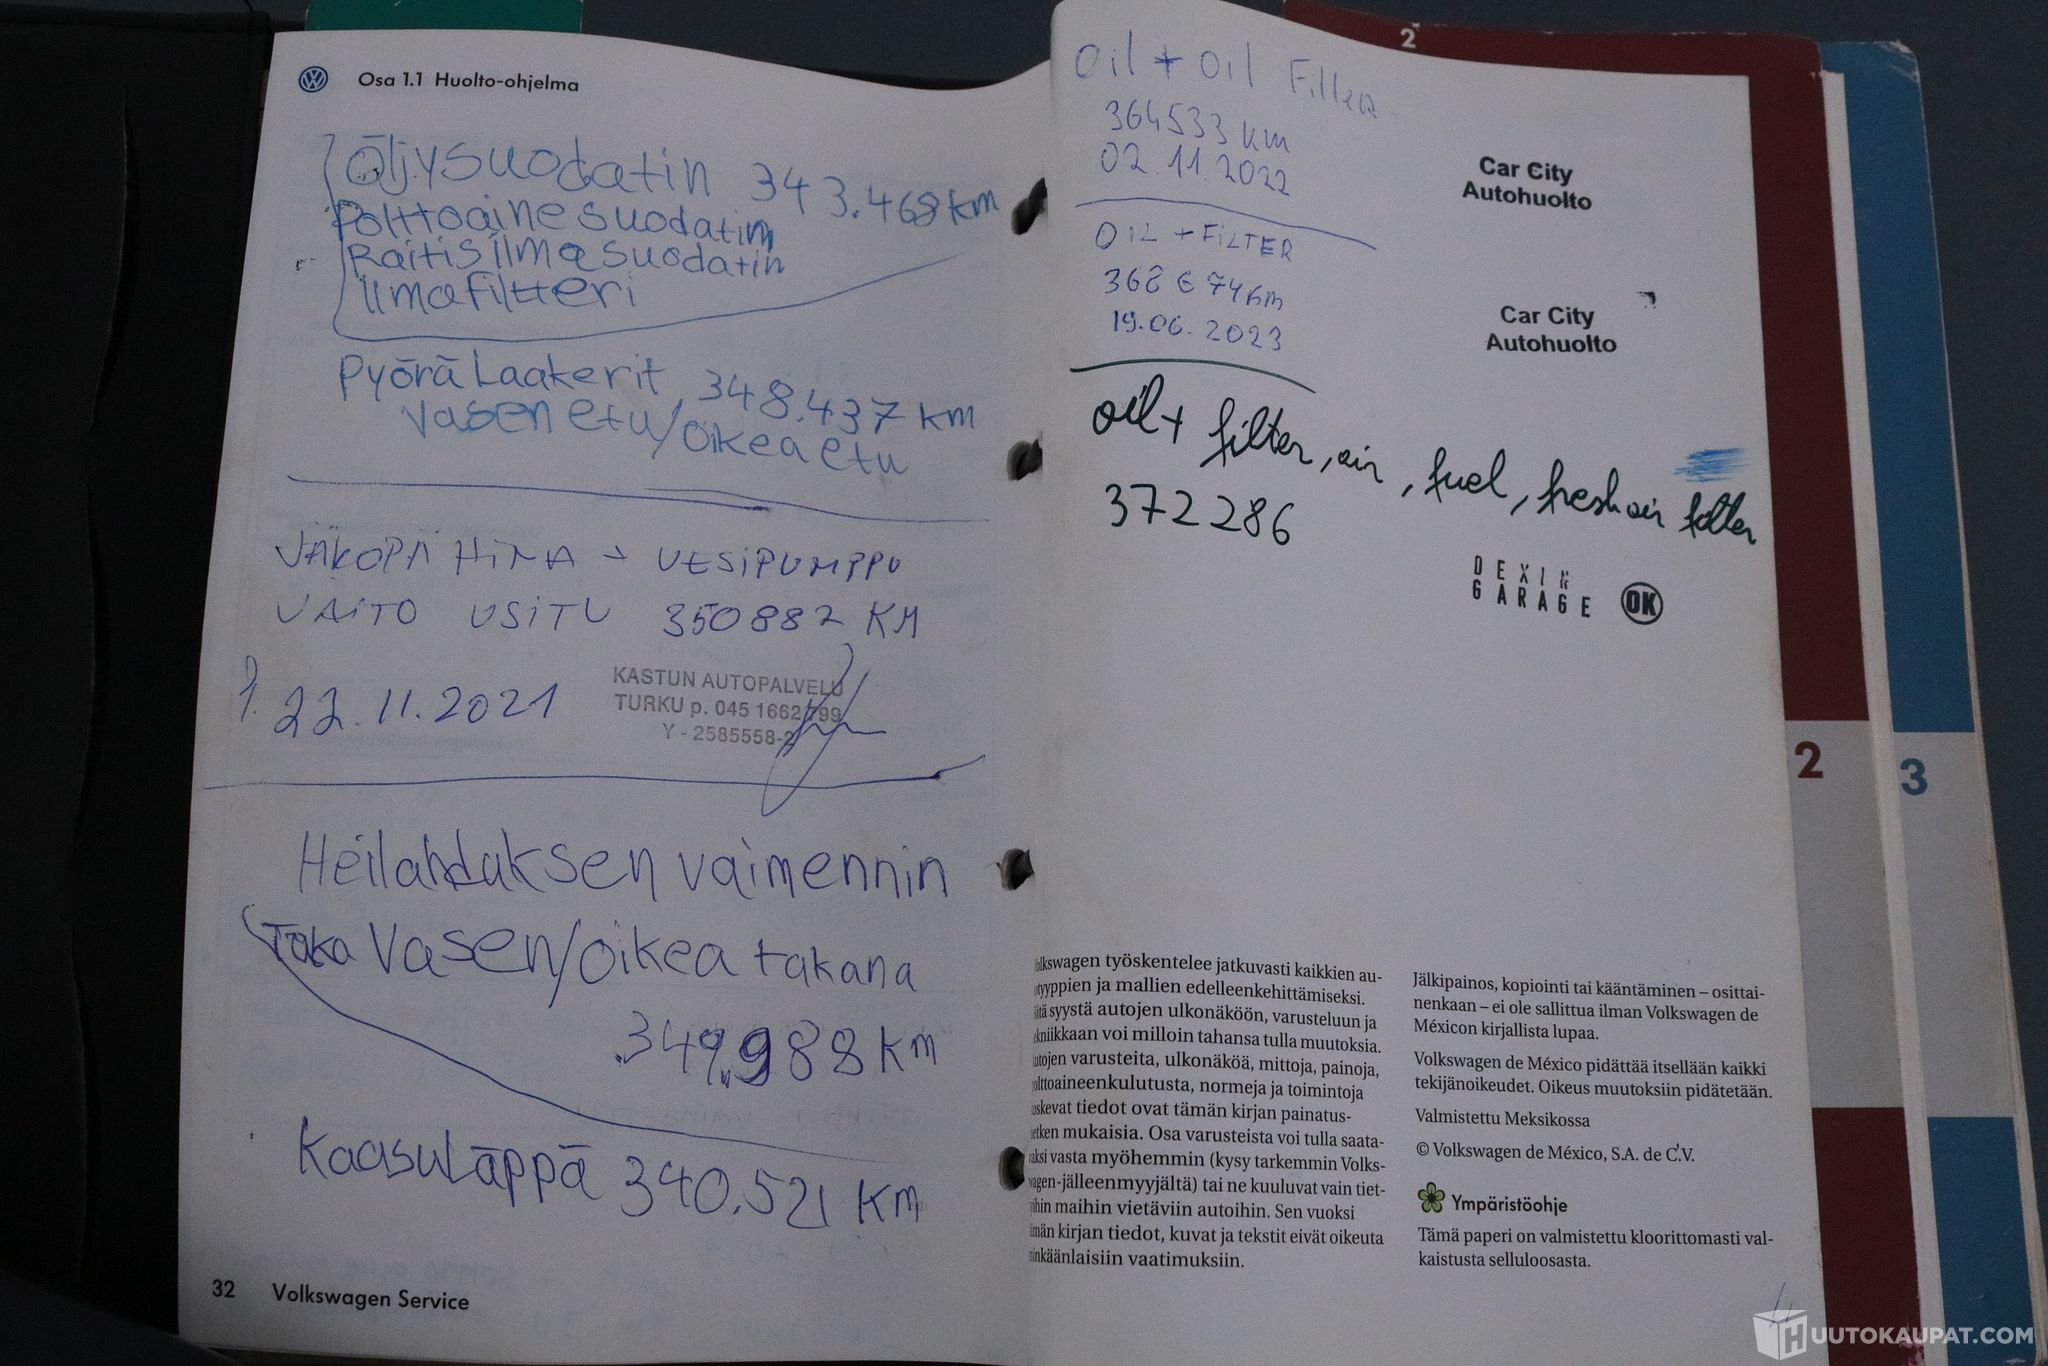 Osa 1.1 Huolto-ohjelma
Öljysuodatin 343.468 km
Polttoainesuodatin
Raitis ilmasuodatin
Ilmafiltteri
Pyörä Laakerit, 348.437 km
Vasen etu/oikea etu
JAKOPÄ HINA + VESIPUMPPU
VAITO USITU 350882 KM
22.11.2021
KASTUN AUTOPALVELU
TURKU p. 045 1662799
Y - 2585558-2
Heilahduksen vaimennin
Taka Vasen/oikea takana
349.988 km
Kaasuläppä 340.521 km
32 Volkswagen Service
2
Oil + Oil Filter
364533 km
02.11.2022
Car City
Autohuolto
OIL + FILTER
368674 km
19.06.2023
Car City
Autohuolto
oil + filter, air, fuel, fresh air filter
372286
DEXIN
GARAGE OK
2
3
Volkswagen työskentelee jatkuvasti kaikkien au-
totyyppien ja mallien edelleenkehittämiseksi.
Siitä syystä autojen ulkonäköön, varusteluun ja
tekniikkaan voi milloin tahansa tulla muutoksia.
Autojen varusteita, ulkonäköä, mittoja, painoja,
polttoaineenkulutusta, normeja ja toimintoja
koskevat tiedot ovat tämän kirjan painatus-
hetken mukaisia. Osa varusteista voi tulla saata-
vaksi vasta myöhemmin (kysy tarkemmin Volks-
wagen-jälleenmyyjältä) tai ne kuuluvat vain tiet-
tyihin maihin vietäviin autoihin. Sen vuoksi
tämän kirjan tiedot, kuvat ja tekstit eivät oikeuta
minkäänlaisiin vaatimuksiin.
Jälkipainos, kopiointi tai kääntäminen – osittai-
nenkaan – ei ole sallittua ilman Volkswagen de
Méxicon kirjallista lupaa.
Volkswagen de México pidättää itsellään kaikki
tekijänoikeudet. Oikeus muutoksiin pidätetään.
Valmistettu Meksikossa
© Volkswagen de México, S.A. de C.V.
Ympäristöohje
Tämä paperi on valmistettu kloorittomasti val-
kaistusta selluloosasta.
HUUTOKAUPAT.COM